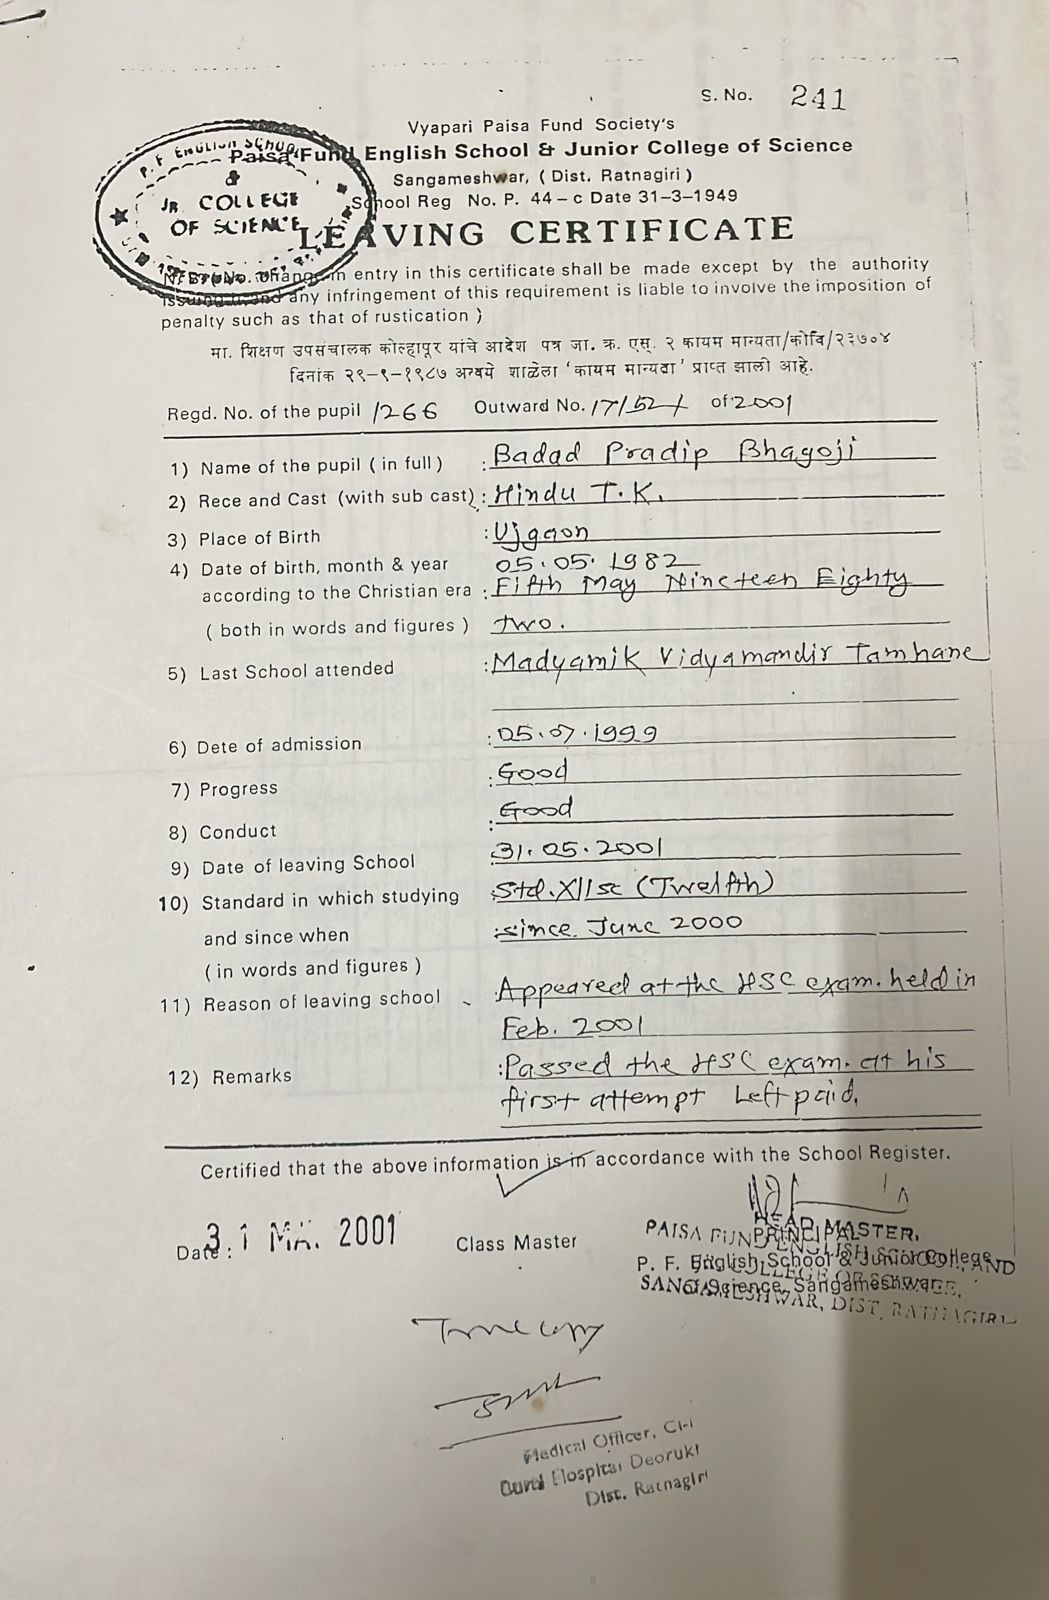 S. No. 241
Vyapari Paisa Fund Society's
Paisa Fund English School & Junior College of Science
Sangameshwar, ( Dist. Ratnagiri )
School Reg No. P. 44 – c Date 31–3–1949
P. F ENGLISH SCHOOL
&
JR. COLLEGE
OF SCIENCE
LEAVING CERTIFICATE
No change in entry in this certificate shall be made except by the authority
issuing it and any infringement of this requirement is liable to involve the imposition of
penalty such as that of rustication )
मा. शिक्षण उपसंचालक कोल्हापूर यांचे आदेश पत्र जा. क्र. एस्. २ कायम मान्यता/कोवि/२३७०४
दिनांक २९-९-१९८७ अन्वये शाळेला 'कायम मान्यता' प्राप्त झाली आहे.
Regd. No. of the pupil 1266 Outward No. 17/52 of 2001
1) Name of the pupil ( in full ) : Badad Pradip Bhagoji
2) Rece and Cast (with sub cast) : Hindu T.K.
3) Place of Birth : Ujgaon
4) Date of birth, month & year 05.05.1982
according to the Christian era : Fifth May Nineteen Eighty
( both in words and figures ) two.
5) Last School attended : Madyamik Vidyamandir Tamhane
6) Dete of admission : 05.07.1999
7) Progress : Good
8) Conduct : Good
9) Date of leaving School : 31.05.2001
10) Standard in which studying : Std. XII sc (Twelfth)
and since when : since June 2000
( in words and figures )
11) Reason of leaving school : Appeared at the HSC exam. held in
Feb. 2001
12) Remarks : Passed the HSC exam. at his
first attempt Left paid.
Certified that the above information is in accordance with the School Register.
Date : 31 2001
Class Master
HEAD MASTER,
PRINCIPAL
PAISA FUND ENGLISH SCHOOL AND
P. F. English School & Junior College
JR. COLLEGE OF SCIENCE,
of Science, Sangameshwar.
SANGAMESHWAR, DIST. RATNAGIRI
True copy
Medical Officer,
Rural Hospital Deorukh
Dist. Ratnagiri